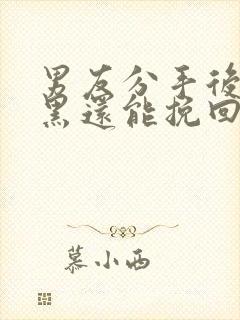 男友分手後
黑還能挽回
慕小西